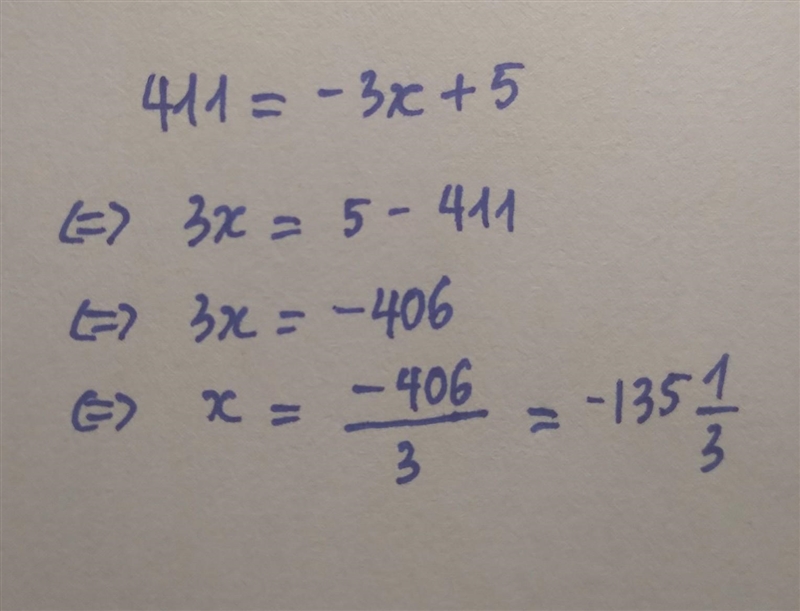 411 = -3x + 5
<=> 3x = 5 - 411
<=> 3x = -406
<=> x = -406/3 = -135 1/3